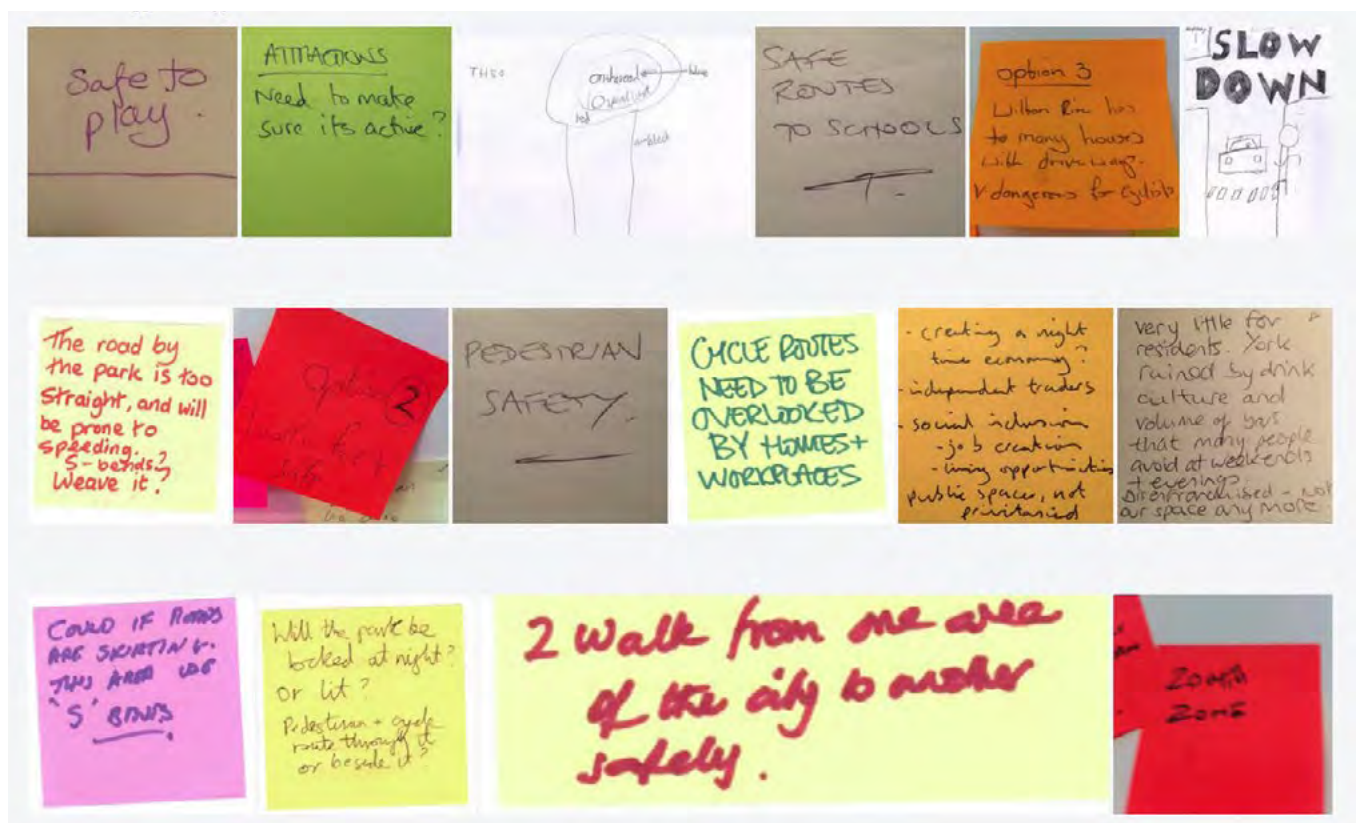 Safe to
play.
ATTRACTIONS
Need to make
sure its active?
red
SAFE
ROUTES
TO SCHOOLS
option 3
Wilton Rise has
to many houses
with driveways.
V dangerous for cyclists
SLOW
DOWN
The road by
the park is too
straight, and will
be prone to
speeding.
S-bends?
Weave it?
Option 2
PEDESTRIAN
SAFETY.
CYCLE ROUTES
NEED TO BE
OVERLOOKED
BY HOMES +
WORKPLACES
- creating a night
time economy?
- independent traders
- social inclusion
- job creation
- living opportunities
public spaces, not
privitarised
very little for
residents. York
ruined by drink
culture and
volume of bars
that many people
avoid at weekends
+ evenings.
Disenfranchised - not
our space any more.
COULD IF ROADS
ARE SKIRTING
THIS AREA USE
'S' BENDS.
Will the park be
locked at night?
or lit?
Pedestrian + cycle
route through it
or beside it?
2 Walk from one area
of the city to another
safely.
20 MPH
ZONE